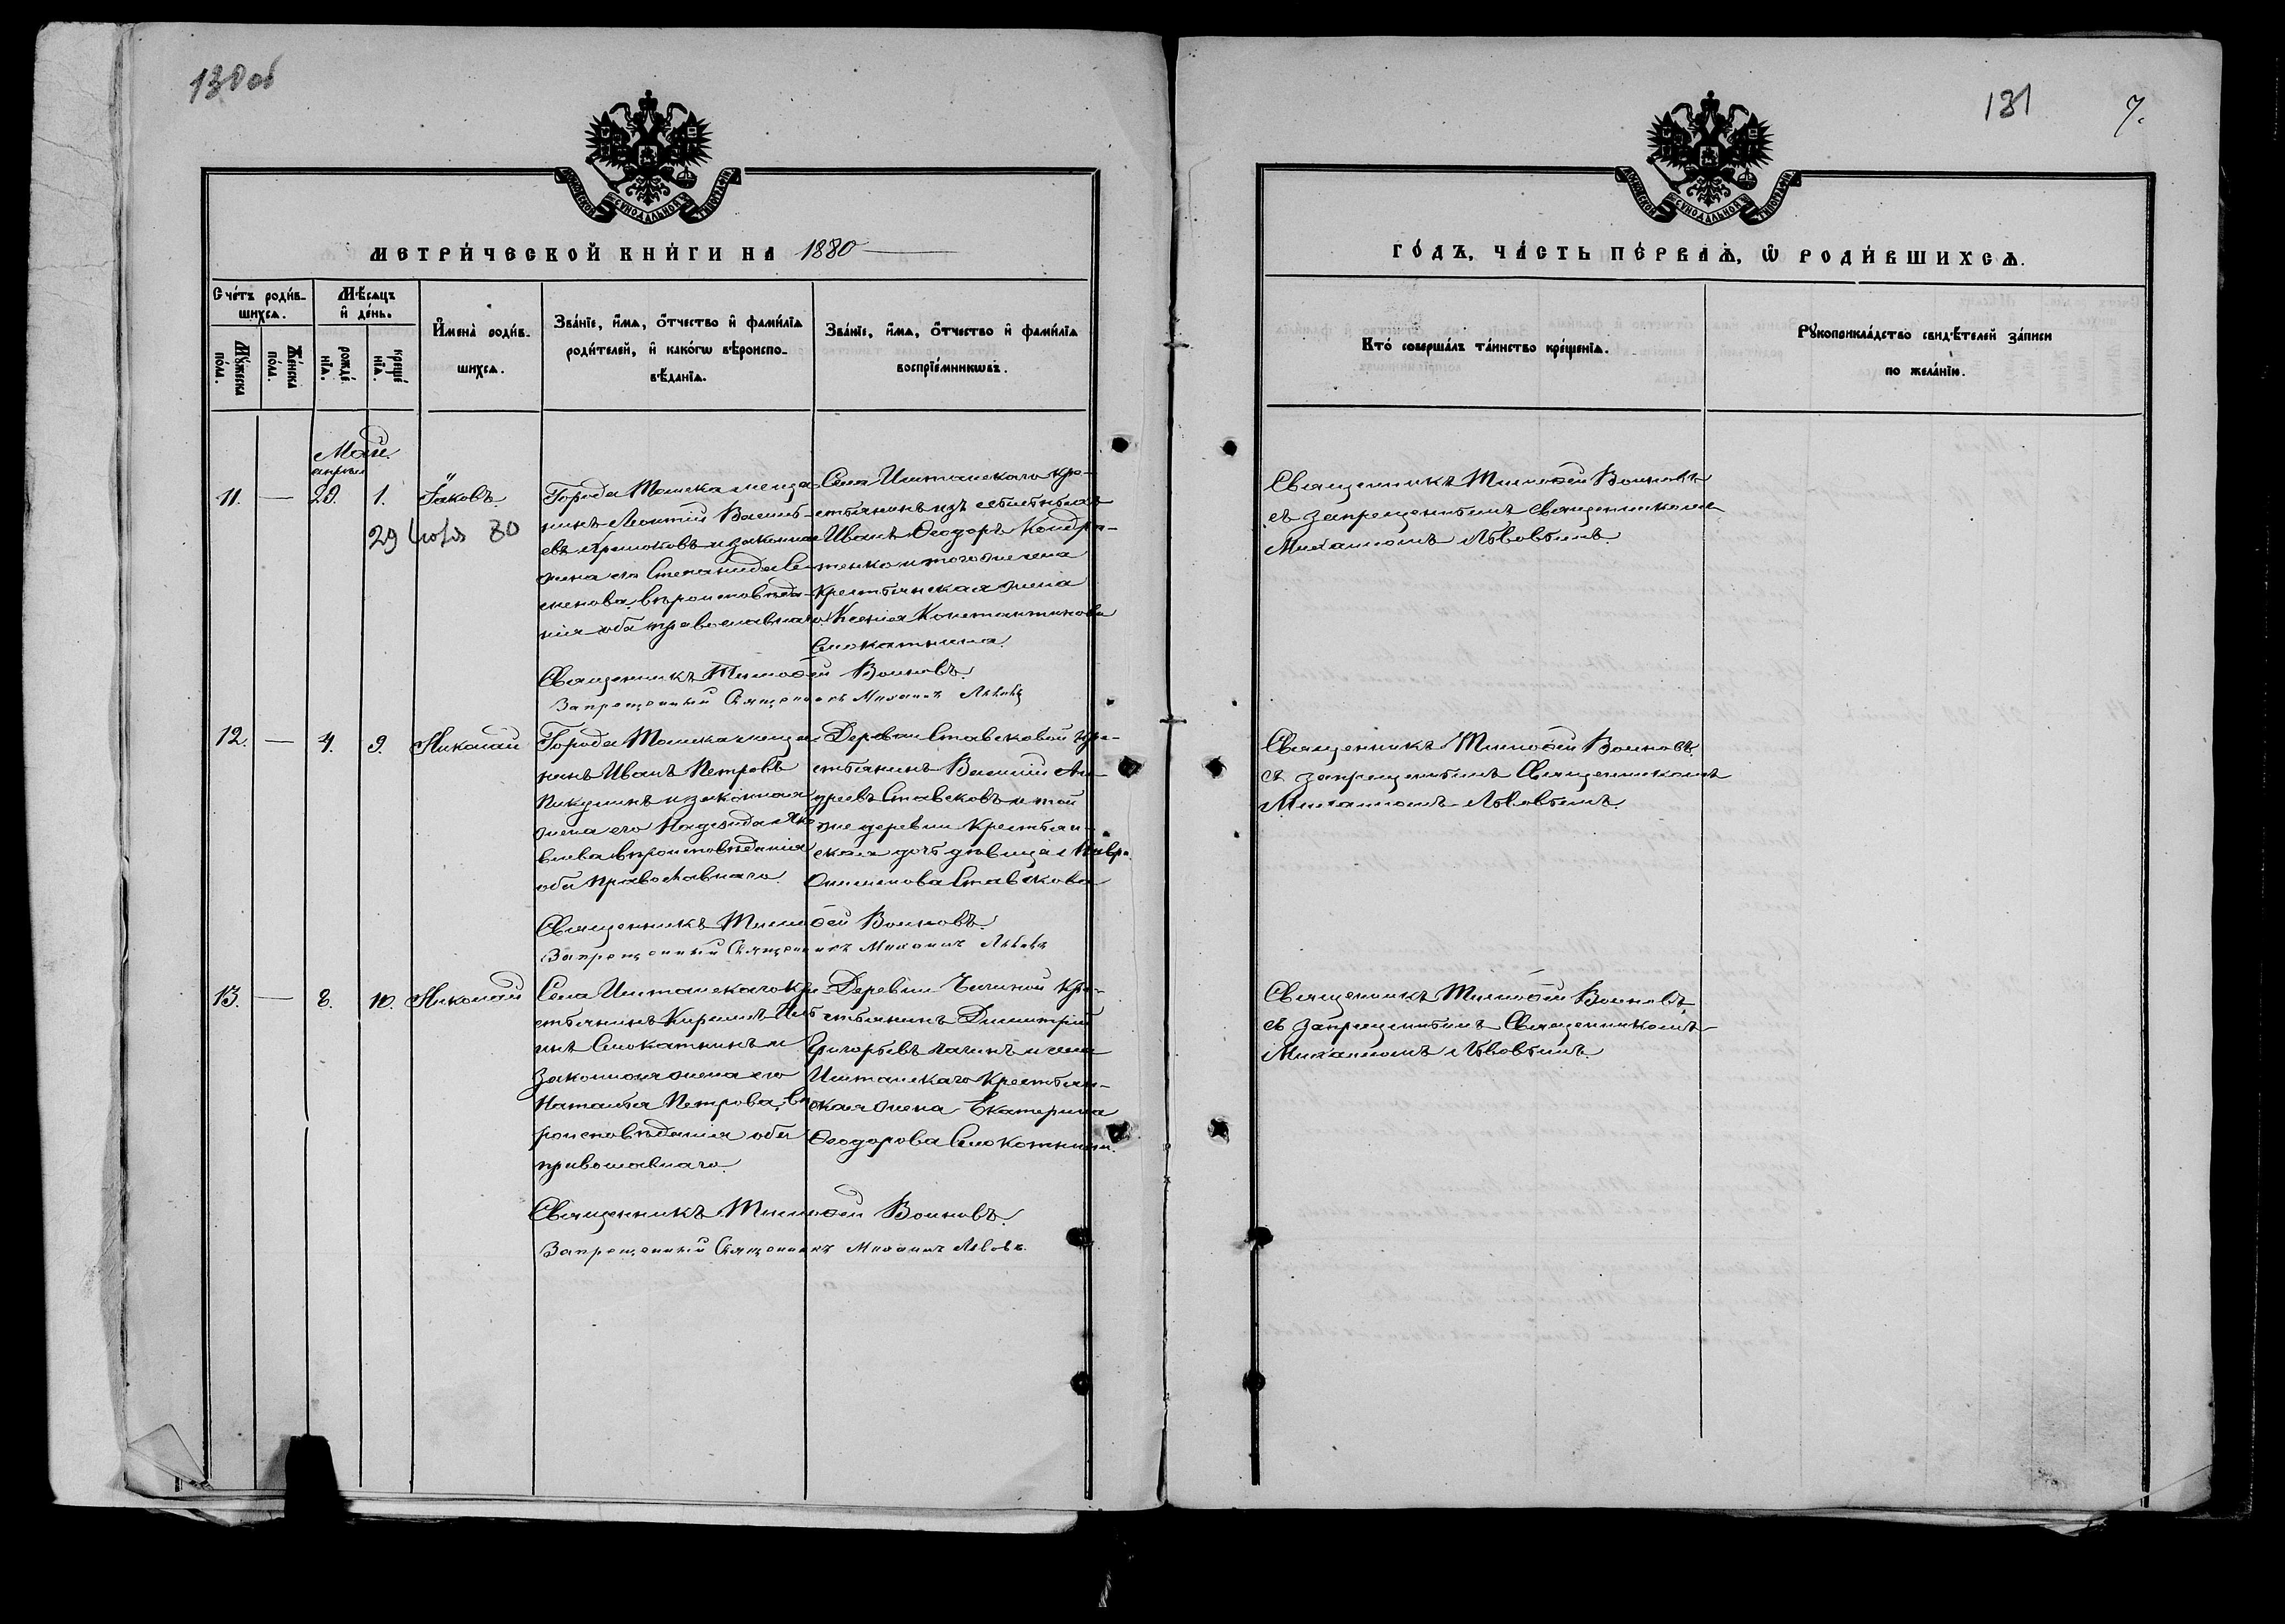 130 об
131
7.
МЕТРИ́ЧЕСКОЙ КНИ́ГИ НА 1880
Сче́тъ роди́в-
шихсѧ.
Мѣ́сяцъ
и҆ де́нь.
Мꙋ́жеска по́ла.
Же́нска по́ла.
рожде́ нїѧ.
креще́ нїѧ.
И҆мена̀ роди́в-
шихсѧ.
Зва́нїе, и҆́мѧ, ѻ҆́тчество и҆ фами́лїѧ
роди́телей, и҆ како́гѡ вѣроиспо-
вѣ́данїѧ.
Зва́нїе, и҆́мѧ, ѻ҆́тчество и҆ фами́лїѧ
воспрїе́мникѡвъ.
Май.
апрѣля
11. — 29. 1. Іаковъ.
29 Іюля 80
Города Томска мѣща-
нинъ Леонтій Василь-
евъ и законная
жена его Степанида Се-
менова, вѣроисповѣда-
нія оба православнаго.
Села Иштанскаго кре-
стьянинъ изъ ссыльныхъ
Иванъ Ѳеодоръ Кондра-
тенко и того же села
крестьянская жена
Ксенія Константинова
Смокатнина.
Священникъ Тимоѳей Воиновъ.
Запрещенный Священникъ Михаилъ Львовъ
12. — 4. 9. Николай
Города Томска мѣща-
нинъ Иванъ Петровъ
Пикулинъ и законная
жена его Надежда Яко-
влева вѣроисповѣданія
оба православнаго.
Деревни Ставсковой кре-
стьянинъ Василій Ан-
дреевъ Ставсковъ и той
же деревни крестьян-
ская дочь дѣвица Мавра
Ставскова
Священникъ Тимоѳей Воиновъ.
Запрещенный Священникъ Михаилъ Львовъ
13. — 8. 10. Николай
Села Иштанскаго кре-
стьянинъ Кирилъ Иль-
инъ Смокатнинъ и
законная жена его
Наталья Петрова, вѣ-
роисповѣданія оба
православнаго.
Деревни кре-
стьянинъ Димитрій
Григорьевъ и села
Иштанскаго крестьян-
ская жена Екатерина
Ѳеодорова Смокотнина.
Священникъ Тимоѳей Воиновъ.
Запрещенный Священникъ Михаилъ Львовъ.
ГО́ДЪ, ЧА́СТЬ ПЕ́РВАѦ, Ѡ҆ РОДИ́ВШИХСѦ.
Кто̀ соверша́лъ та́инство креще́нїѧ.
Рꙋкоприкла́дство свидѣ́телей за́писи
по жела́нїю.
Священникъ Тимоѳей Воиновъ
съ запрещеннымъ священникомъ
Михаиломъ Львовымъ.
Священникъ Тимоѳей Воиновъ.
съ запрещеннымъ Священникомъ
Михаиломъ Львовымъ.
Священникъ Тимоѳей Воиновъ,
съ запрещеннымъ Священникомъ
Михаиломъ Львовымъ.